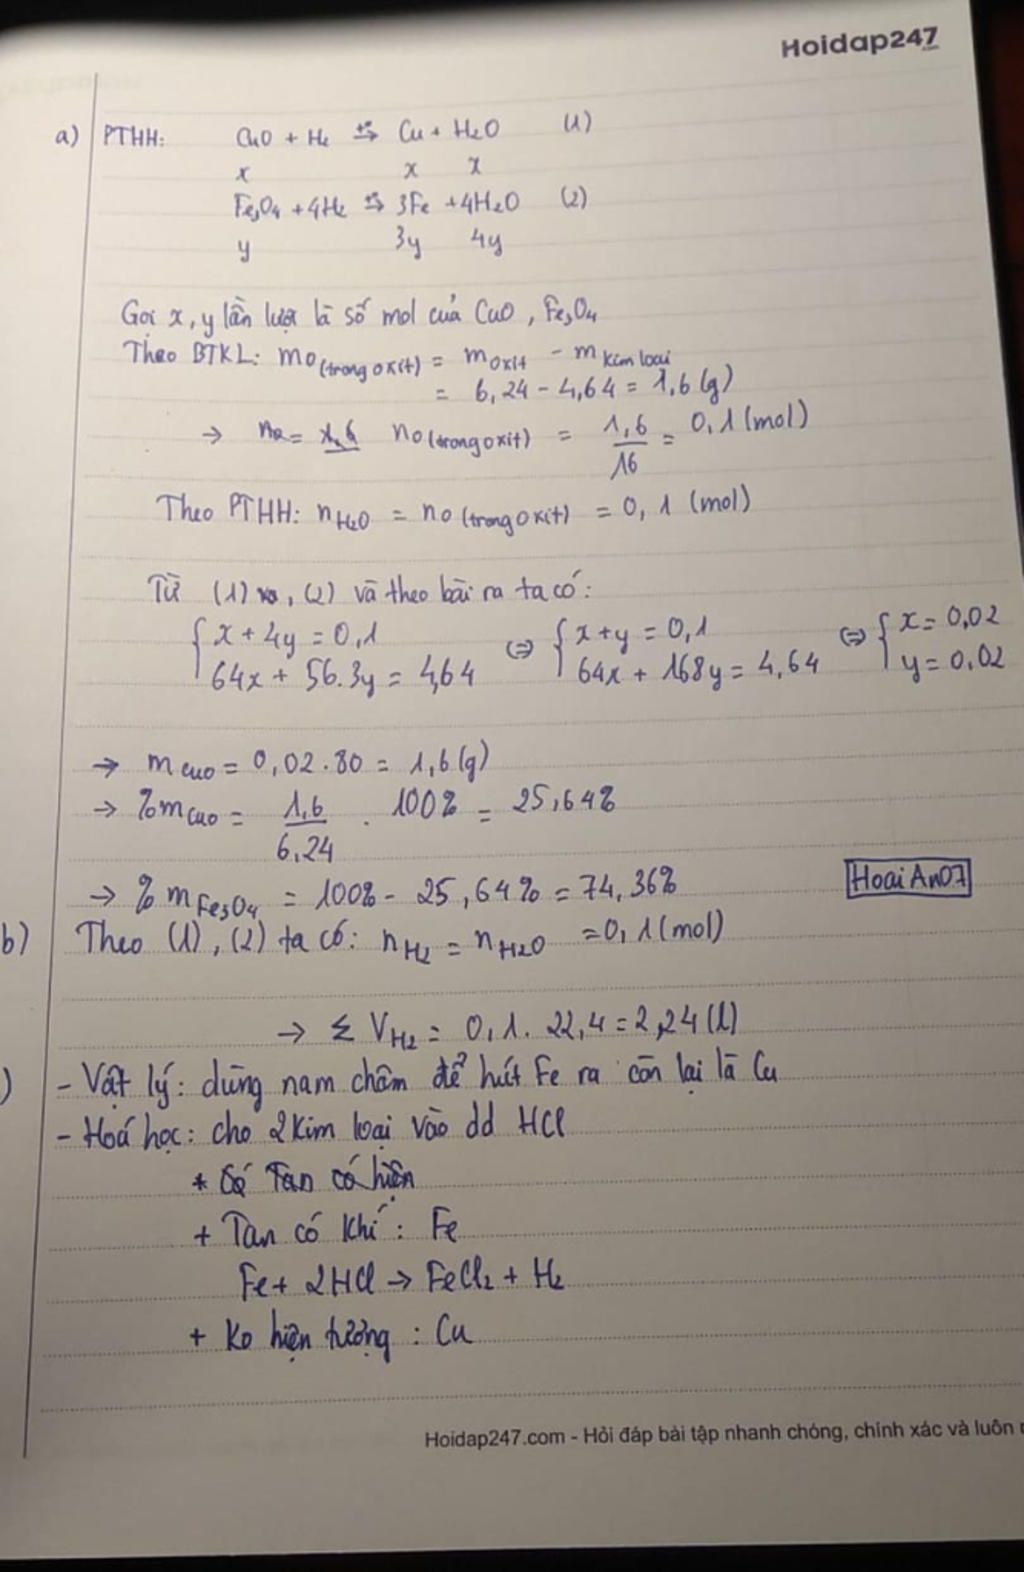 Hoidap247
a) PTHH: CuO + H₂ →t° Cu + H₂O (1)
x x x
Fe₃O₄ + 4H₂ →t° 3Fe + 4H₂O (2)
y 3y 4y
Gọi x, y lần lượt là số mol của CuO, Fe₃O₄
Theo BTKL: mO(trong oxit) = m oxit - m kim loại
= 6,24 - 4,64 = 1,6 (g)
→ = 1,6 nO(trong oxit) = 1,6/16 = 0,1 (mol)
Theo PTHH: nH₂O = nO(trong oxit) = 0,1 (mol)
Từ (1), (2) và theo bài ra ta có:
{ x + 4y = 0,1 ⇔ { x + y = 0,1 ⇔ { x = 0,02
64x + 56.3y = 4,64 64x + 168y = 4,64 y = 0,02
→ mCuO = 0,02.80 = 1,6 (g)
→ %mCuO = 1,6/6,24 . 100% = 25,64%
→ %mFe₃O₄ = 100% - 25,64% = 74,36%
HoaiAn07
b) Theo (1), (2) ta có: nH₂ = nH₂O = 0,1 (mol)
→ Σ VH₂ = 0,1.22,4 = 2,24 (l)
) - Vật lý: dùng nam châm để hút Fe ra còn lại là Cu
- Hoá học: cho 2 kim loại vào dd HCl
+ Tan có hiện
+ Tan có khí: Fe
Fe + 2HCl → FeCl₂ + H₂
+ Ko hiện tượng: Cu
Hoidap247.com - Hỏi đáp bài tập nhanh chóng, chính xác và luôn